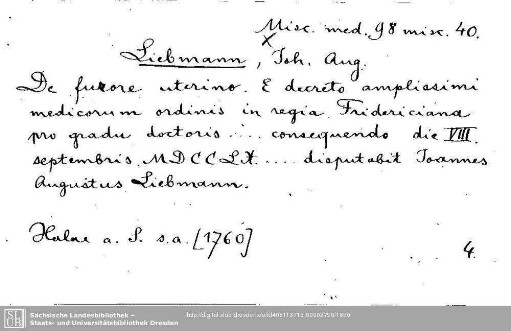 Misc. med. 98 misc. 40.
x
Liebmann, Joh. Aug.
De furore uterino. E decreto amplissimi
medicorum ordinis in regia Fridericiana
pro gradu doctoris .... consequendo die VIII.
septembris MDCCLX .... disputabit Joannes
Augustus Liebmann.
Halae a. S. s.a. [1760]
4.
SLUB
Sächsische Landesbibliothek –
Staats- und Universitätsbibliothek Dresden